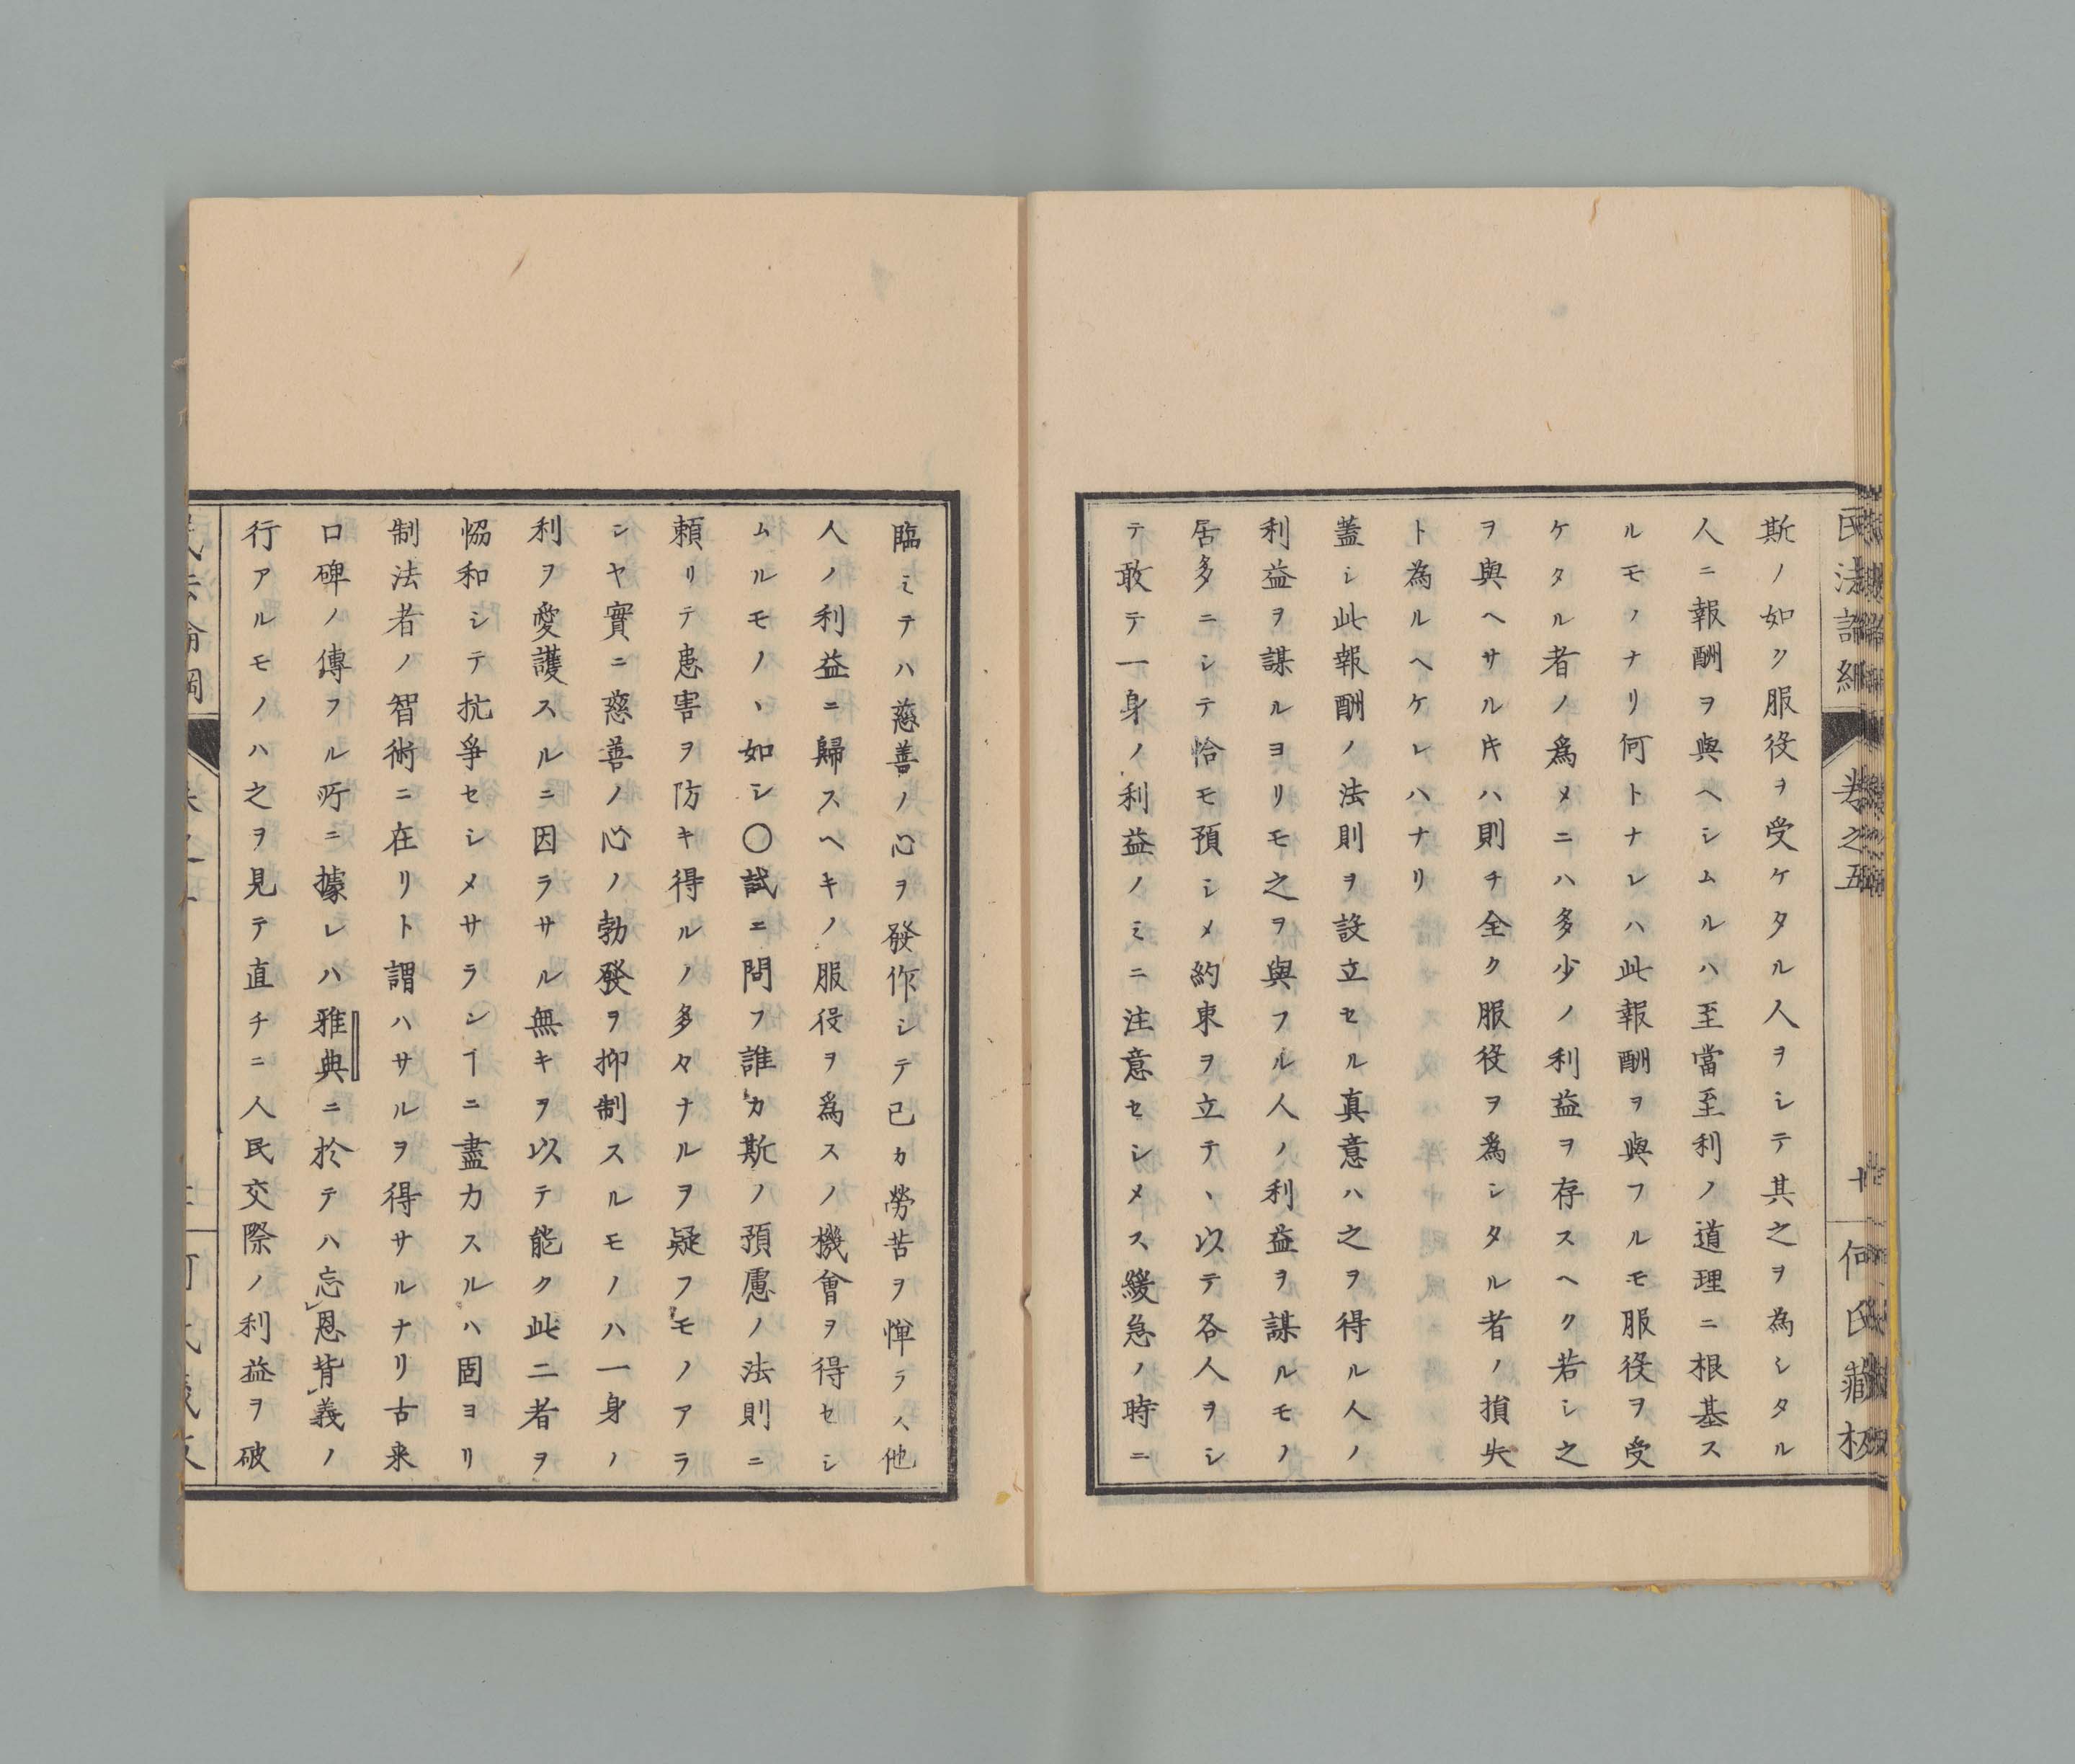 民法論綱
卷之五
十
何氏藏板
斯ノ如ク服役ヲ受ケタル人ヲシテ其之ヲ為シタル
人ニ報酬ヲ與ヘシムルハ至當至利ノ道理ニ根基ス
ルモノナリ何トナレハ此報酬ヲ與フルモ服役ヲ受
ケタル者ノ爲メニハ多少ノ利益ヲ存スヘク若シ之
ヲ與ヘサル片ハ則チ全ク服役ヲ爲シタル者ノ損失
ト為ルヘケレハナリ
蓋シ此報酬ノ法則ヲ設立セル真意ハ之ヲ得ル人ノ
利益ヲ謀ルヨリモ之ヲ與フル人ノ利益ヲ謀ルモノ
居多ニシテ恰モ預シメ約束ヲ立テヽ以テ各人ヲシ
テ敢テ一身ノ利益ノミニ注意セシメス緩急ノ時ニ
臨ミテハ慈善ノ心ヲ發作シテ己カ勞苦ヲ憚ラス他
人ノ利益ニ歸スヘキノ服役ヲ爲スノ機會ヲ得セシ
ムルモノヽ如シ〇試ニ問フ誰カ斯ノ預慮ノ法則ニ
頼リテ患害ヲ防キ得ルノ多々ナルヲ疑フモノアラ
ンヤ實ニ慈善ノ心ノ勃發ヲ抑制スルモノハ一身ノ
利ヲ愛護スルニ因ラサル無キヲ以テ能ク此二者ヲ
恊和シテ抗爭セシメサラシヿニ盡力スルハ固ヨリ
制法者ノ智術ニ在リト謂ハサルヲ得サルナリ古来
口碑ノ傳フル所ニ據レハ雅典ニ於テハ忘恩背義ノ
行アルモノハ之ヲ見テ直チニ人民交際ノ利益ヲ破